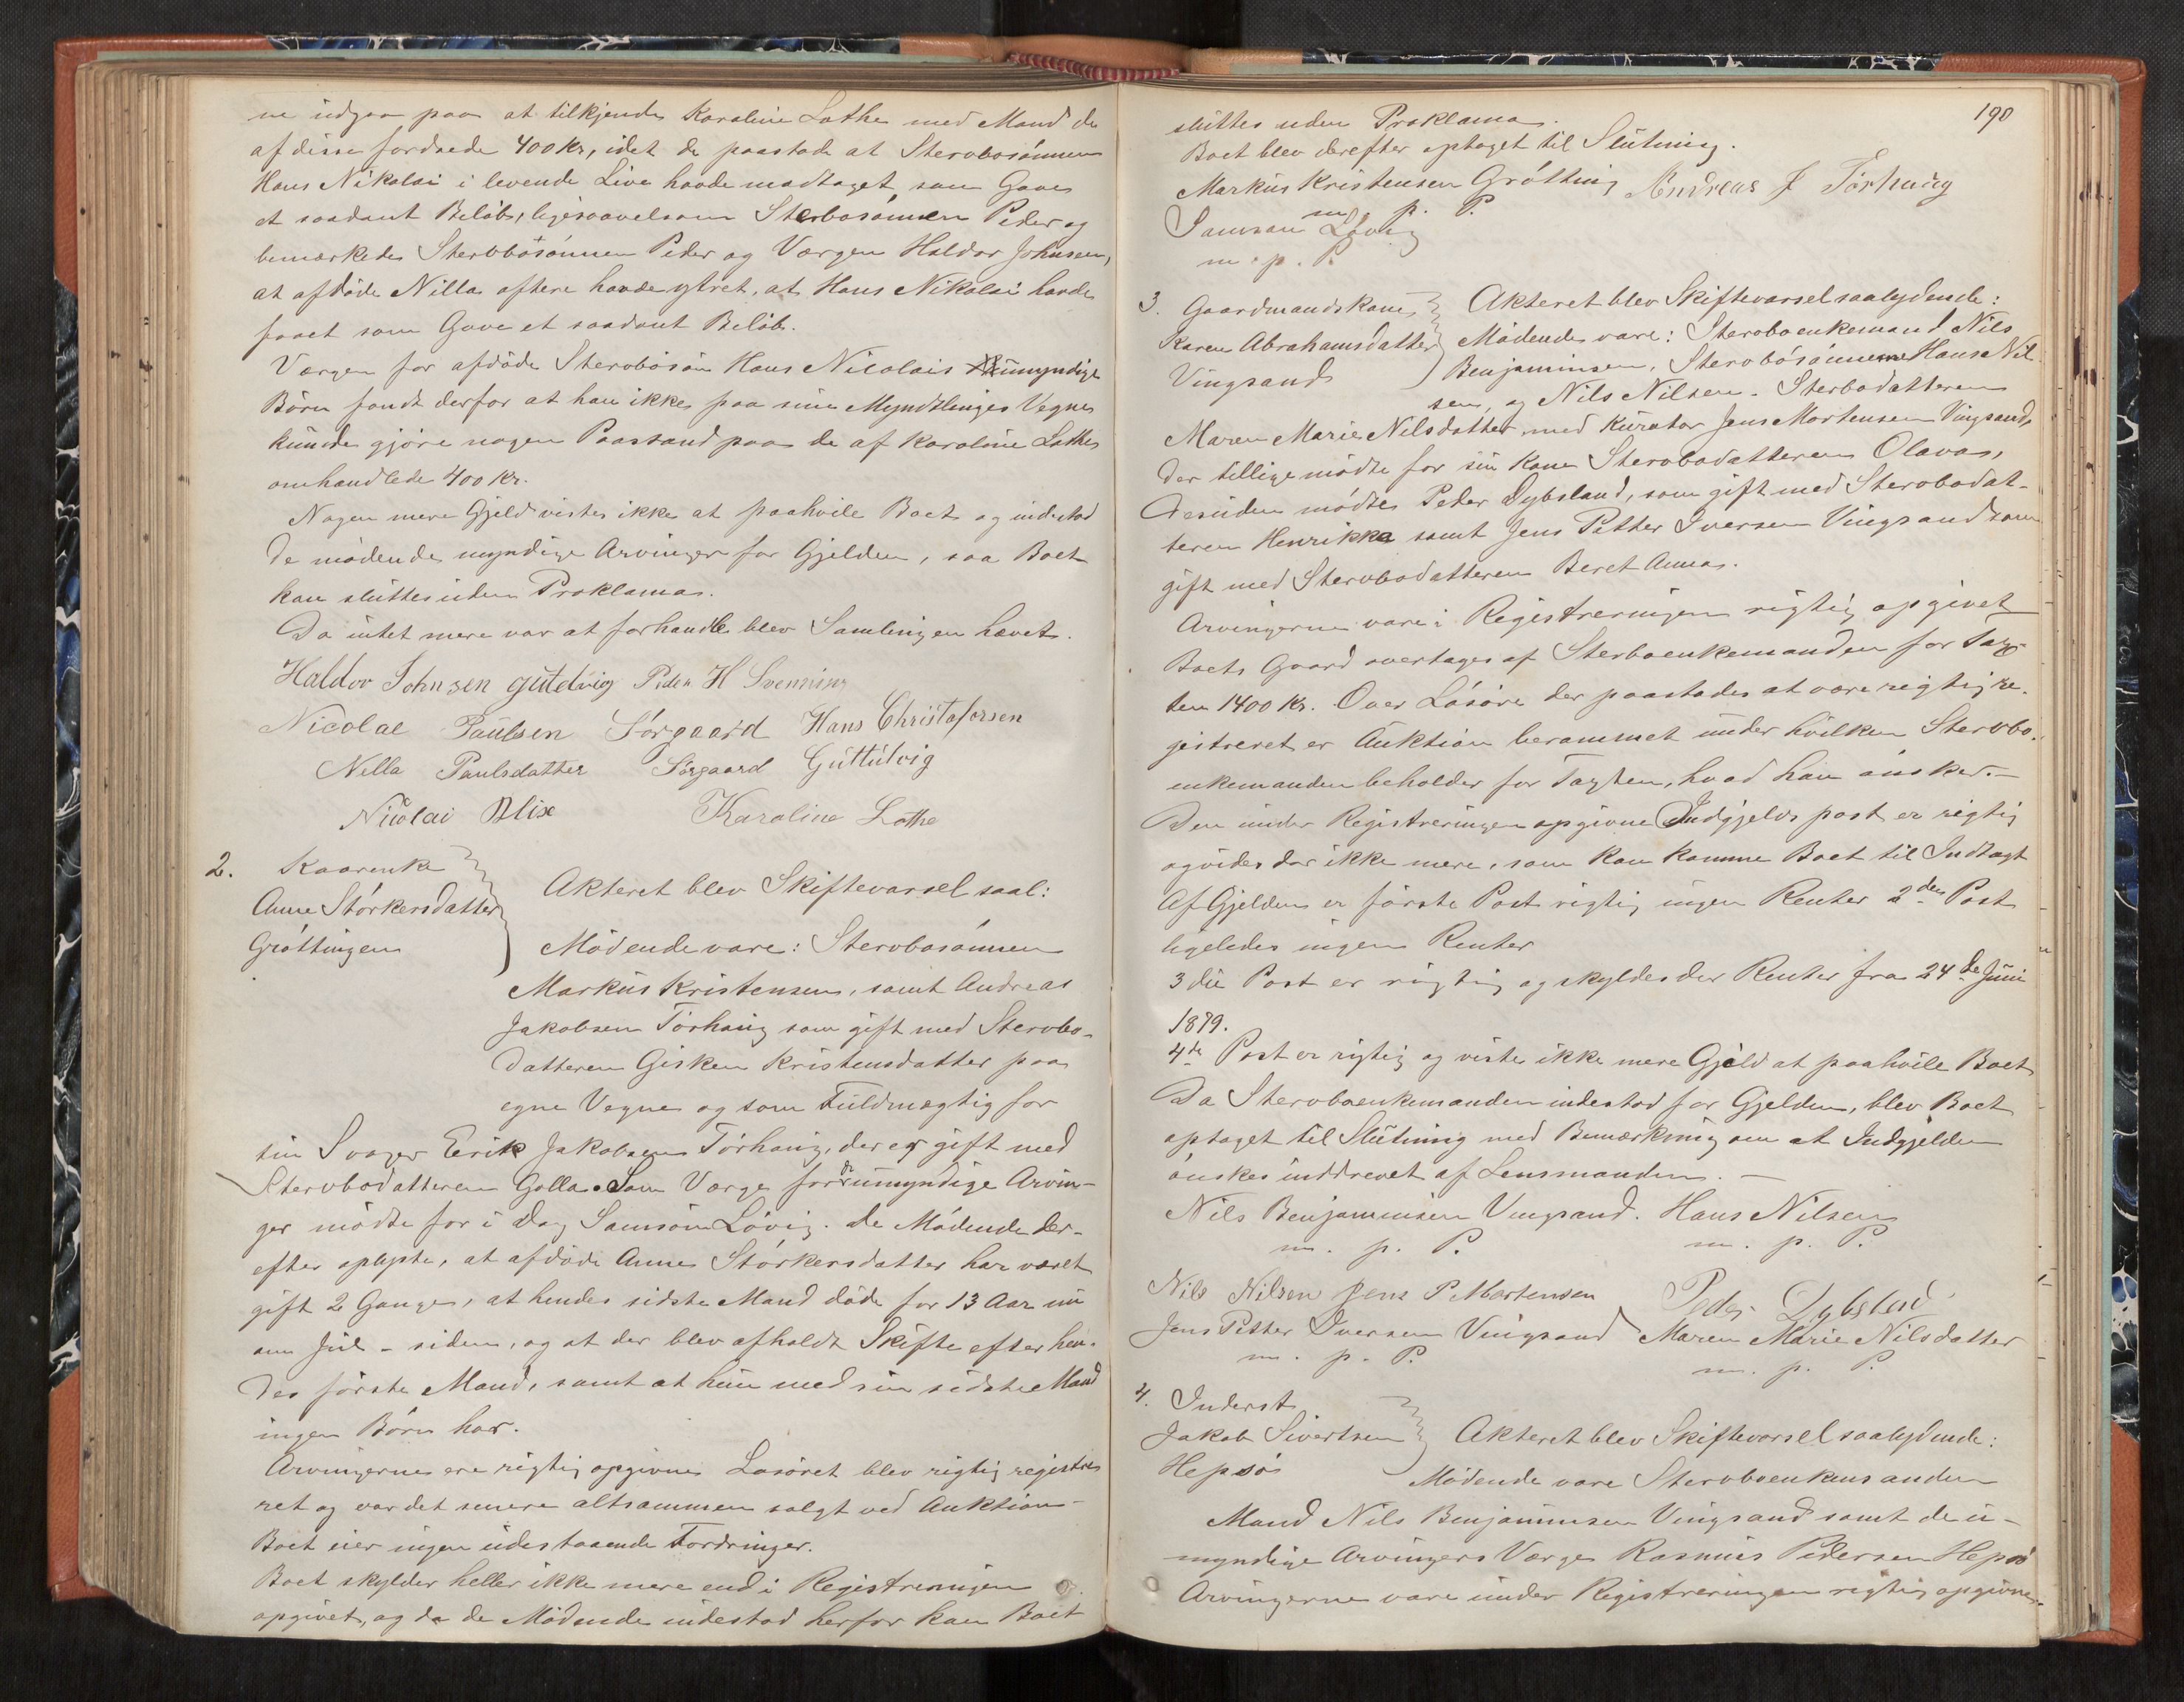 ne udgaa paa at tilkjende Karoline Lothe med Mand de
af disse fordrede 400 Kr, idet de paastode at Stervbosönnen
Hans Nikolai i levende Live havde modtaget som Gave
et saadant Belöb, ligesaavelsom Sterbosönnen Peder og
bemærkedes Stervbosönnen Peder og Værgen Haldor Johnsen,
at afdöde Nilla oftere havde ytret, at Hans Nikolai havde
faaet som Gave et saadant Belöb.
Værgen for afdöde Stervbosön Hans Nicolais umyndige
Börn fandt derfor at han ikke paa sine Myndtlinges Vegne
kunde gjöre nogen Paastand paa de af Karoline Lothe
omhandlede 400 Kr.
Nogen mere Gjeld vistes ikke at paahvile Boet og indestod
de mödende myndige Arvinger for Gjelden, saa Boet
kan sluttes uden Proklama.
Da intet mere var at forhandle blev Samlingen hævet.
Haldor Johnsen gutelvig Peder H Svenning
Nicolai Paulsen Sörgaard Hans Christofersen
Nella Paulsdatter Sörgaard Guttulvig
Nicolai Blix Karoline Lothe
2. Kaarenke
Anne Störkersdatter
Gröttingen
Akteret blev Skiftevarsel saal:
Mödende vare: Stervbosönnen
Markus Kristensen, samt Andreas
Jakobsen Törhaug som gift med Stervbo-
datteren Gisken Kristensdatter paa
egne Vegne og som Fuldmægtig for
sin Svoger Erik Jakobsen Törhaug, der er gift med
Stervbodatteren Golla. Som Værge for de umyndige Arvin-
ger mödte for i Dag Samson Lövig. De Mödende der-
efter oplyste, at afdöde Anne Störkersdatter har været
gift 2 Gange, at hendes sidste Mand döde for 13 Aar nu
om Jul - siden, og at der blev afholdt Skifte efter hen-
des förste Mand, samt at hun med sin sidste Mand
ingen Börn har.
Arvingerne ere rigtig opgivne Lösöret blev rigtig registre
ret og var det senere altsammen solgt ved Auktion -
Boet eier ingen udestaaende Fordringer.
Boet skylder heller ikke mere end i Registreringen
opgivet, og da de Mödende indestod herfor kan Boet
190
sluttes uden Proklama.
Boet blev derefter optaget til Slutning.
Markus Kristensen Grötting Andreas J Törhaug
m. p. P.
Samson Lövig
m. p. P.
3. Gaardmandskone
Karen Abrahamsdatter
Vingsand
Akteret blev Skiftevarsel saalydende:
Mödende vare: Stervboenkemand Nils
Benjaminsen, Stervbosönnerne Hans Nil-
sen, og Nils Nilsen. Sterbodatteren
Maren Marie Nilsdatter med Kurator Jens Mortensen Vingsand,
der tillige mödte for sin Kone Stervbodatteren Olava,
Desuden mödte Peder Dybsland, som gift med Stervbodat-
teren Henrikke samt Jens Petter Iversen Vingsand som
gift med Stervbodatteren Beret Anna.
Arvingerne vare i Registreringen rigtig opgivet
Boets Gaard overtages af Sterboenkemanden for Tax-
ten 1400 Kr. Over Lösöre der paastodes at være rigtig re-
gistreret er Auktion berammet under hvilken Stervbo-
enkemanden beholder for Taxten, hvad han önsker. -
Den under Registreringen opgivne Indgjelds post er rigtig
og vides der ikke mere, som kan komme Boet til Indtægt
Af Gjelden er förste Post rigtig ingen Renter 2den Post
ligeledes ingen Renter
3die Post er rigtig og skyldes der Renter fra 24de Juni
1879.
4de Post er rigtig og vistes ikke mere Gjeld at paahvile Boet
Da Stervboenkemanden indestod for Gjelden, blev Boet
optaget til Slutning med Bemærkning om at Indgjelden
önskes inddrevet af Lensmanden. -
Nils Benjaminsen Vingsand. Hans Nilsen
m. p. P. m. p. P.
Nils Nilsen Jens P. Mortensen Peder Dybsland
Jens Petter Iversen Vingsand Maren Marie Nilsdatter
m. p. P. m. p. P.
4. Inderst
Jakob Sivertsen
Hepsö
Akteret blev Skiftevarsel saalydende:
Mödende vare Stervboenkens anden
Mand Nils Benjaminsen Vingsand samt de u-
myndige Arvingers Værge Rasmus Pedersen Hepsö
Arvingerne vare under Registreringen rigtig opgivne.